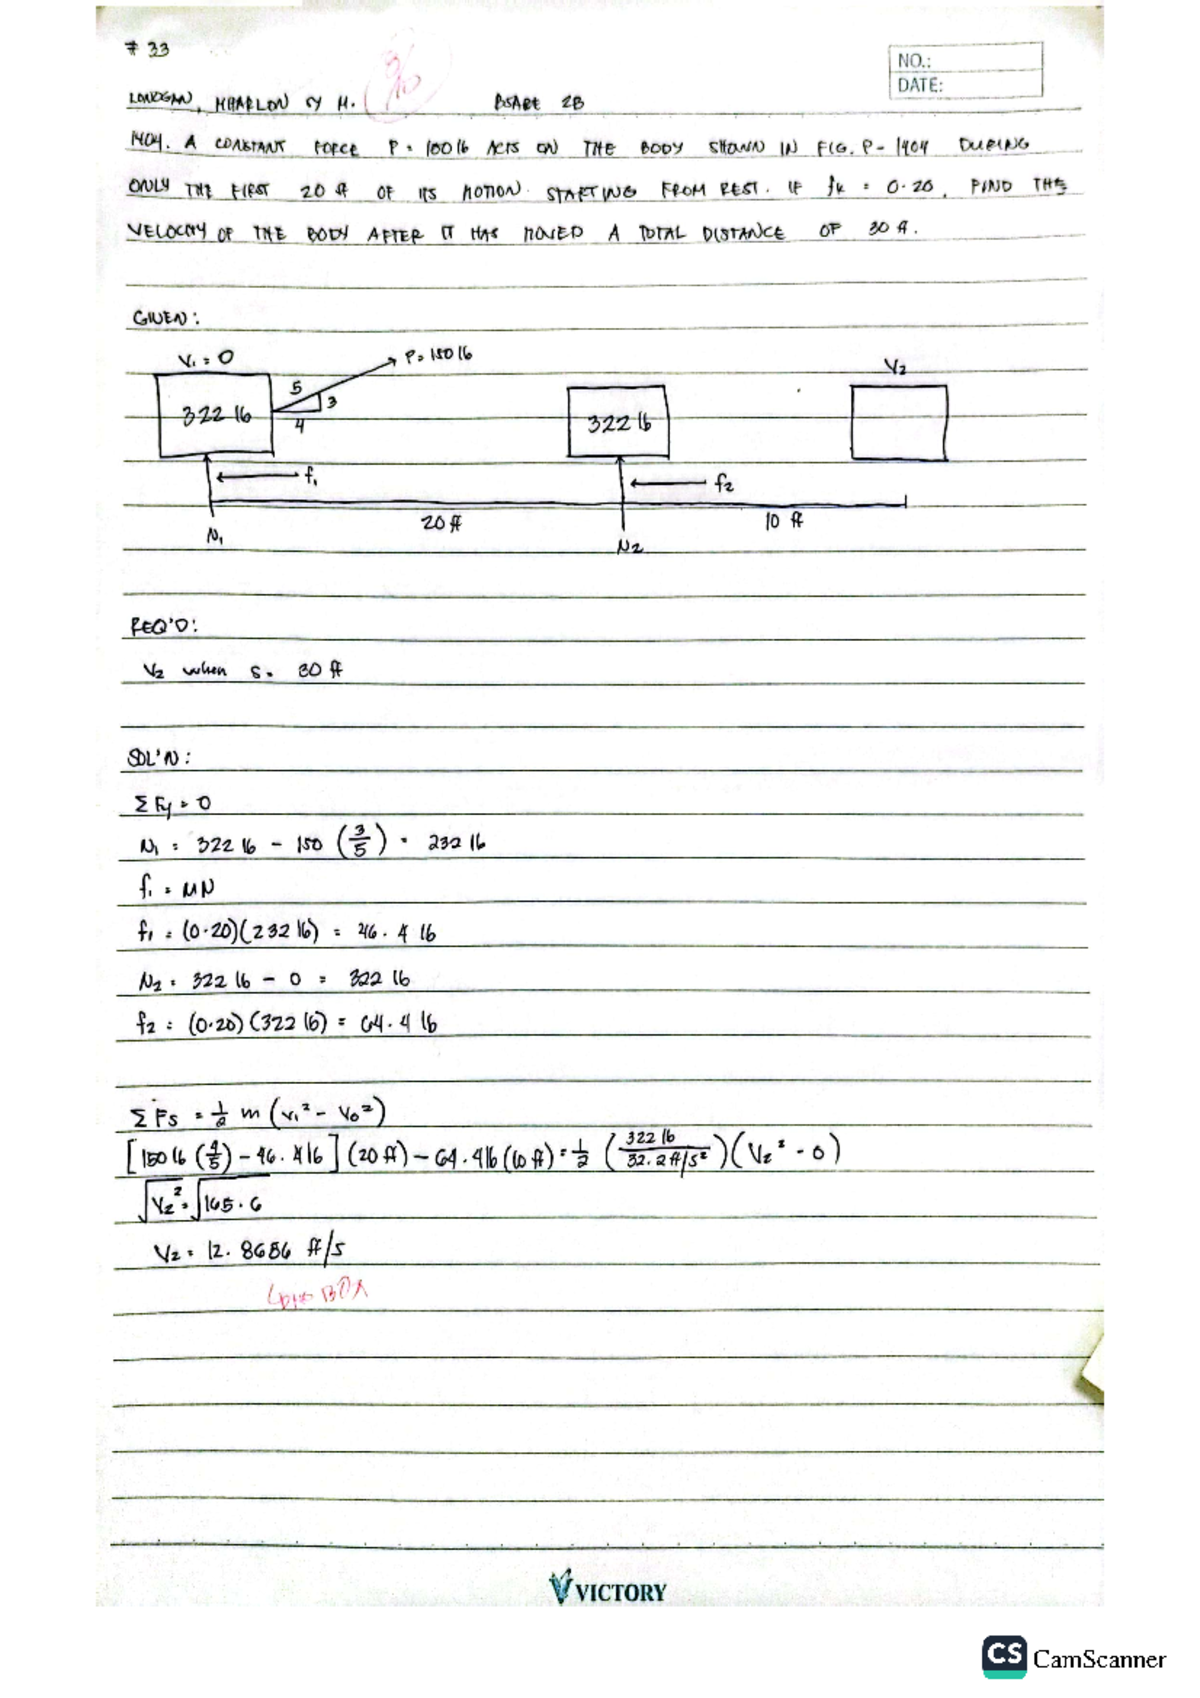 # 33
NO.:
DATE:
MHARLON SY M. BSABE 2B
1404. A CONSTANT FORCE P = 150 lb ACTS ON THE BODY SHOWN IN FIG. P-1404 DURING
ONLY THE FIRST 20 ft OF ITS MOTION STARTING FROM REST. IF fk = 0.20, FIND THE
VELOCITY OF THE BODY AFTER IT HAS MOVED A TOTAL DISTANCE OF 30 ft.
GIVEN:
V₁ = 0
P = 150 lb
V₂
322 lb
5
3
4
322 lb
f₁
f₂
20 ft
10 ft
N₁
N₂
REQ'D:
V₂ when s = 30 ft
SOL'N:
Σ Fy = 0
N₁ = 322 lb - 150 (3/5) = 232 lb
f₁ = MN
f₁ = (0.20)(232 lb) = 46.4 lb
N₂ = 322 lb - 0 = 322 lb
f₂ = (0.20)(322 lb) = 64.4 lb
Σ Fs = 1/2 m (v₁² - v₀²)
[150 lb (4/5) - 46.4 lb] (20 ft) - 64.4 lb (10 ft) = 1/2 (322 lb / 32.2 ft/s²)(V₂² - 0)
√V₂² = √165.6
V₂ = 12.8686 ft/s
BOX
VICTORY
CS CamScanner